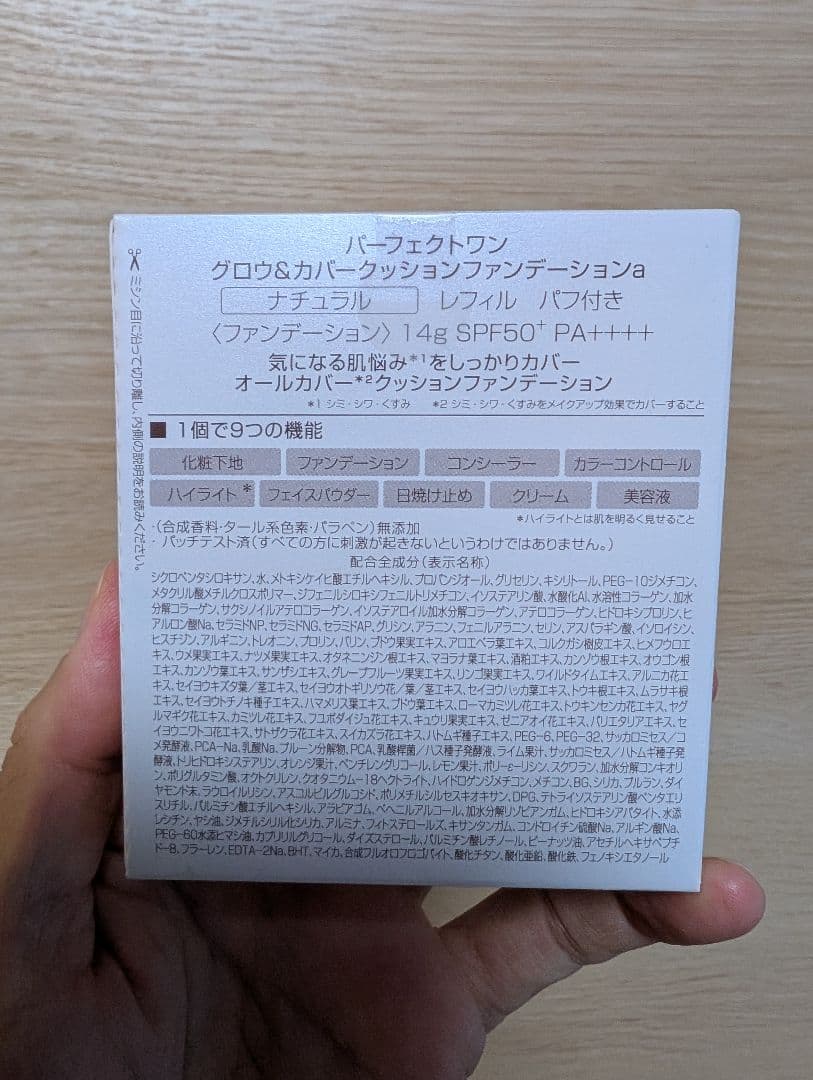 パーフェクトワン
グロウ&カバークッションファンデーションa
ナチュラル レフィル パフ付き
〈ファンデーション〉14g SPF50+ PA++++
気になる肌悩み*1をしっかりカバー
オールカバー*2クッションファンデーション
*1 シミ・シワ・くすみ *2 シミ・シワ・くすみをメイクアップ効果でカバーすること
■ 1個で9つの機能
化粧下地 ファンデーション コンシーラー カラーコントロール
ハイライト* フェイスパウダー 日焼け止め クリーム 美容液
*ハイライトとは肌を明るく見せること
・(合成香料・タール系色素・パラベン)無添加
・パッチテスト済(すべての方に刺激が起きないというわけではありません。)
配合全成分(表示名称)
シクロペンタシロキサン、水、メトキシケイヒ酸エチルヘキシル、プロパンジオール、グリセリン、キシリトール、PEG-10ジメチコン、
メタクリル酸メチルクロスポリマー、ジフェニルシロキシフェニルトリメチコン、イソステアリン酸、水酸化Al、水溶性コラーゲン、加水
分解コラーゲン、サクシノイルアテロコラーゲン、イソステアロイル加水分解コラーゲン、アテロコラーゲン、ヒドロキシプロリン、ヒ
アルロン酸Na、セラミドNP、セラミドNG、セラミドAP、グリシン、アラニン、フェニルアラニン、セリン、アスパラギン酸、イソロイシン、
ヒスチジン、アルギニン、トレオニン、プロリン、バリン、ブドウ果実エキス、アロエベラ葉エキス、コルクガシ樹皮エキス、ヒメフウロエ
キス、ウメ果実エキス、ナツメ果実エキス、オタネニンジン根エキス、マヨラナ葉エキス、酒粕エキス、カンゾウ根エキス、オウゴン根
エキス、カンゾウ葉エキス、サンザシエキス、グレープフルーツ果実エキス、リンゴ果実エキス、ワイルドタイムエキス、アルニカ花エ
キス、セイヨウキズタ葉/茎エキス、セイヨウオトギリソウ花/葉/茎エキス、セイヨウハッカ葉エキス、トウキ根エキス、ムラサキ根
エキス、セイヨウトチノキ種子エキス、ハマメリス葉エキス、ブドウ葉エキス、ローマカミツレ花エキス、トウキンセンカ花エキス、ヤグ
ルマギク花エキス、カミツレ花エキス、フユボダイジュ花エキス、キュウリ果実エキス、ゼニアオイ花エキス、パリエタリアエキス、セ
イヨウニワトコ花エキス、サトザクラ花エキス、スイカズラ花エキス、ハトムギ種子エキス、PEG-6、PEG-32、サッカロミセス/コ
メ発酵液、PCA-Na、乳酸Na、プルーン分解物、PCA、乳酸桿菌/ハス種子発酵液、ライム果汁、サッカロミセス/ハトムギ種子発
酵液、トリヒドロキシステアリン、オレンジ果汁、ペンチレングリコール、レモン果汁、ポリ-ε-リシン、スクワラン、加水分解コンキオリ
ン、ポリグルタミン酸、オクトクリレン、クオタニウム-18ヘクトライト、ハイドロゲンジメチコン、メチコン、BG、シリカ、プルラン、ダイ
ヤモンド末、ラウロイルリシン、アスコルビルグルコシド、ポリメチルシルセスキオキサン、DPG、テトライソステアリン酸ペンタエリ
スリチル、パルミチン酸エチルヘキシル、アラビアゴム、ベヘニルアルコール、加水分解リゾビアンガム、ヒドロキシアパタイト、水添
レシチン、ヤシ油、ジメチルシリル化シリカ、アルミナ、フィトステロールズ、キサンタンガム、コンドロイチン硫酸Na、アルギン酸Na、
PEG-60水添ヒマシ油、カプリリルグリコール、ダイズステロール、パルミチン酸レチノール、ピーナッツ油、アセチルヘキサペプチ
ド-8、フラーレン、EDTA-2Na、BHT、マイカ、合成フルオロフロゴパイト、酸化チタン、酸化亜鉛、酸化鉄、フェノキシエタノール
ミシン目に沿って切り離し、内側の説明をお読みください。